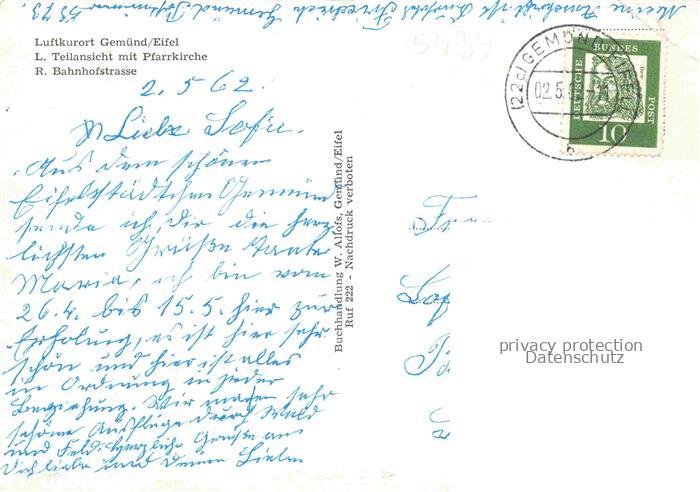 Meine Anschrift ist
Friedrich Gemünd
Luftkurort Gemünd/Eifel
L. Teilansicht mit Pfarrkirche
R. Bahnhofstrasse
2.5.62.
Liebe Sofie.
Aus dem schönen
Eifelstädtchen Gemünd
sende ich Dir die herz
lichsten Grüße Tante
Maria, ich bin vom
26.4. bis 15.5. hier zur
Erholung, es ist hier sehr
schön und hier ist alles
in Ordnung in jeder
Beziehung. Wir machen sehr
schöne Ausflüge durch Wald
und Feld. Herzliche Grüße an
Dich liebe und Deine Lieben
Buchhandlung W. Allofs, Gemünd/Eifel
Ruf 222 - Nachdruck verboten
(22c) GEMÜND (EIFEL)
02.5.
b
DEUTSCHE BUNDES POST
10
privacy protection
Datenschutz